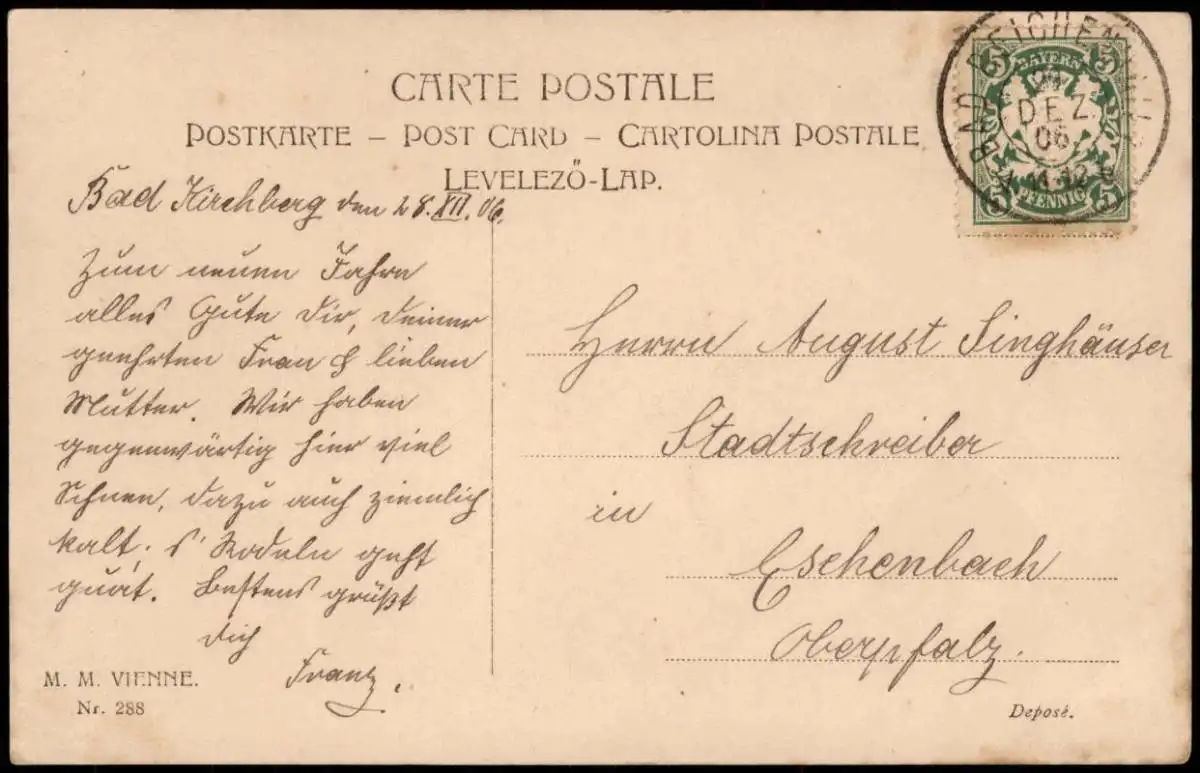 CARTE POSTALE
POSTKARTE – POST CARD – CARTOLINA POSTALE
LEVELEZŐ-LAP.
BAD REICHENHALL
DEZ. 06.
BAYERN
5 5
5 PFENNIG 5
Bad Kirchberg den 28. XII. 06.
Zum neuen Jahre
alles Gute Dir, Deiner
geehrten Frau & lieben
Mutter. Wir haben
gegenwärtig hier viel
Schnee, dazu auch ziemlich
kalt. s' Rodeln geht
guat. Bestens grüßt
Dich
Franz.
Herrn August Singhäuser
Stadtschreiber
in
Eschenbach
Oberpfalz.
M. M. VIENNE.
Nr. 288
Deposé.